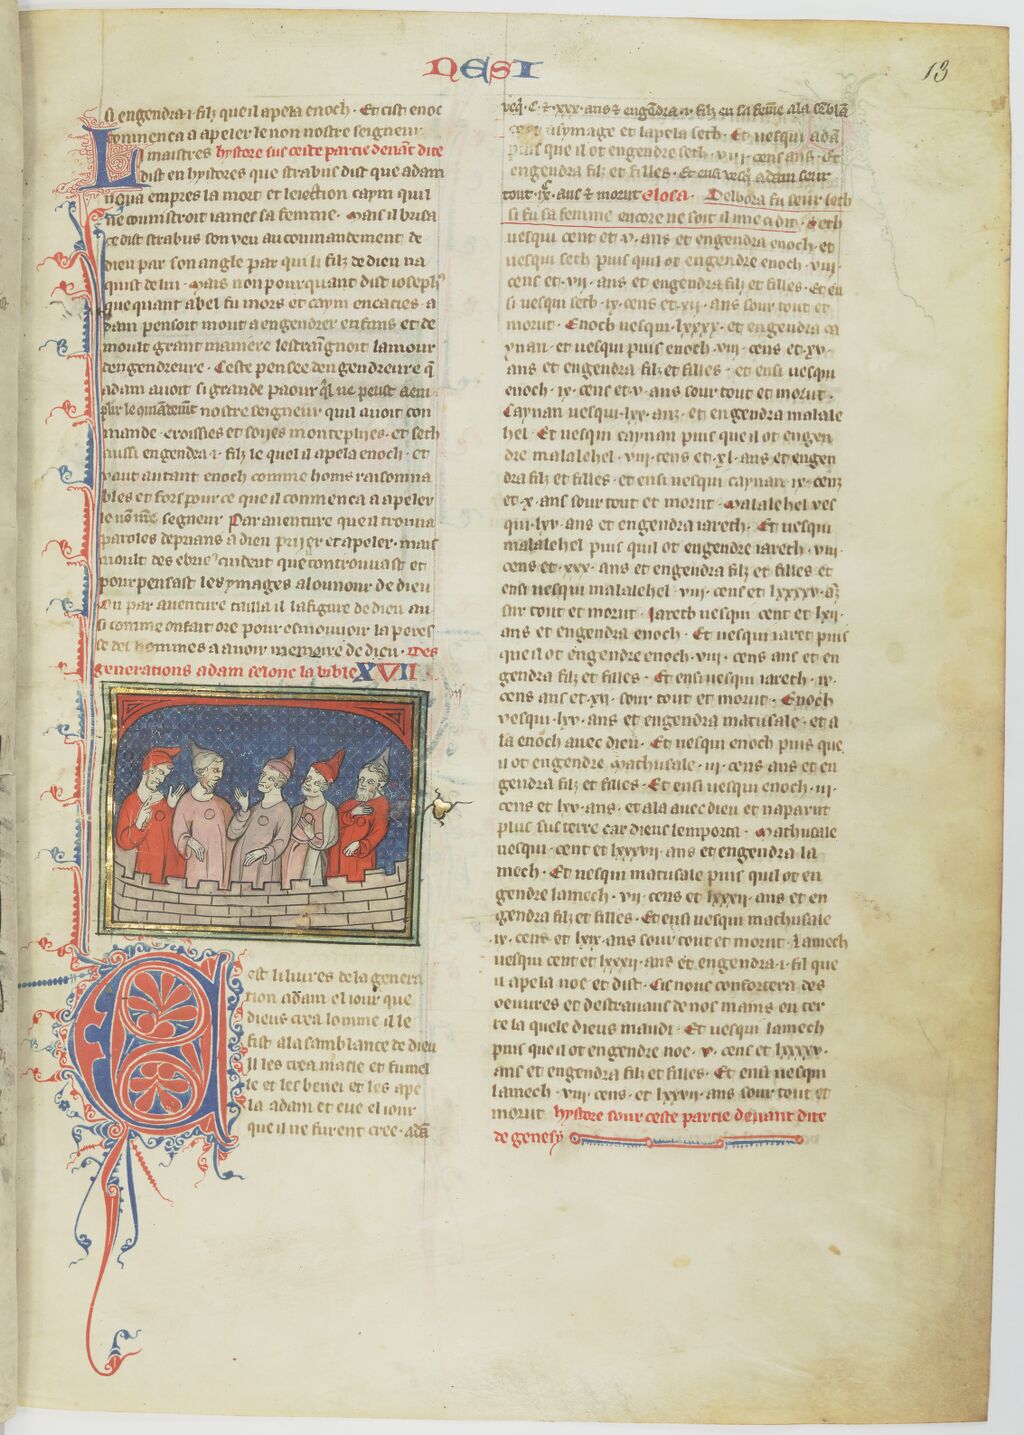 NESI
13
si engendra .i. filz que il apela enoch. Et cist enoc
commenca a apeler le non nostre seigneur
Li maistres hystore sus ceste partie deuant dite
dist en hystores que strabus dist que adam
uoua empres la mort et leiection caym quil
ne connistroit iames sa femme. Mais il brisa
ce dist strabus son veu au commandement de
dieu par son angle par qui li filz de dieu na
quist de lui. Mais non pour quant dist ioseph9
que quant abel fu mors et caym encacies. a
dam pensoit mout a engendrer enfans et de
moult grant maniere lestraignoit lamour
dengendreure. Ceste pensee dengendreure q̃
adam auoit si grande paour ql ne peust aem
plir le cõmandemt nostre seigneur quil auoit con
mande. croissies et soiies monteplijes. et seth
aussi engendra .i. filz le quel il apela enoch. et
vaut autant enoch comme homs raisonna
bles et fors pour ce que il commenca a apeler
le nõ nr̃e segneur Par auenture que il trouua
paroles deprians a dieu priier et apeler. mais
moult des ebrieˢ cuident que controuuast et
pourpensast les ymages a lounour de dieu
Ou par auenture tailla il la figure de dieu au
si comme on fait ore pour esmouuoir la peres
se des hommes a auoir memoire de dieu. Des
generations adam selonc la bible XVII
Cest li liures de la genera
tion adam el iour que
dieus crea lomme il le
fist a la samblance de dieu
Il les crea masle et fumel
le et les benei et les ape
la adam et eue el iour
que il ne furent cree. adã
vesq̃. C. et .xxx. ans et engẽdra .i. filz en sa femme a la sẽblã
ce et a lymage et lapela seth. Et uesqui adã
puis que il ot engendre seth .viij. cens ans. Et
engendra filz et filles. Et ensi vesq̃ adam seur
tout .ix.c ans et morut Glosa. Delbora fu seur seth
si fu sa femme encore ne soit il mie a dit. Seth
uesqui cent et .v. ans et engendra enoch. et
uesqui seth puis quil ot engendre enoch .viij.
cens et .vij. ans et engendra filz et filles. Et en
si uesqui seth .ix. cens et .xij. ans sour tout et
morut. Enoch uesqui .lxxxx. et engendra ca
ynan. et uesqui puis enoch .viij. cens et .xv.
ans et engendra filz et filles. et ensi uesqui
enoch .ix. cens et .v. ans sour tout et morut.
Caynan uesqui .lxx. anz. et engendra malale
hel. Et uesqui caynan puis que il ot engen
dre malalehel .viij. cens et .xl. ans et engen
dra filz et filles. et ensi uesqui caynan .ix. cenz
et .x. ans sour tout et morut. Malalehel ves
qui .lxv. ans et engendra iareth. Et uesqui
malalehel puis quil ot engendre iareth .viij.
cens et .xxx. ans et engendra filz et filles et
ensi uesqui malalehel .viij. cens et lxxxxv. ãs
sur tout et morut. Iareth uesqui cent et lxij.
ans et engendra enoch. Et uesqui iaret puis
que il ot engendre enoch .viij. cens ans et en
gendra filz et filles. Et ensi uesqui iareth .ix.
cens ans et .xij. sour tout et morut. Enoch
vesqui .lxv. ans et engendra matusale. et a
la enoch auec dieu. Et uesqui enoch puis que
il ot engendre Mathusale .iij. cens ans et en
gendra filz et filles. Et ensi uesqui enoch .iij.
cens et lxv. ans. et ala auec dieu et naparut
plus sus terre car dieus lemporta. Mathusale
uesqui. cent et lxxxvij. ans et engendra la
mech. Et uesqui matusale puis quil ot en
gendre lamech .vij. cens et lxxxij. ans et en
gendra filz et filles. Et ensi uesqui mathusale
.ix. cens et lxix. ans sour tout et morut. Lamech
uesqui cent et lxxxij. ans et engendra .i. fil que
il apela noe et dist. Cis nous confortera des
oeuures et des trauaus de nos mains en ter
re la quele dieus maudi. Et uesqui lamech
puis que il ot engendre noe. v. cens et lxxxxv.
ans et engendra filz et filles. Et ensi uesqui
lamech .viij. cens. et lxxvij. ans sour tout et
morut hystore sour ceste partie deuant dite
de genesy